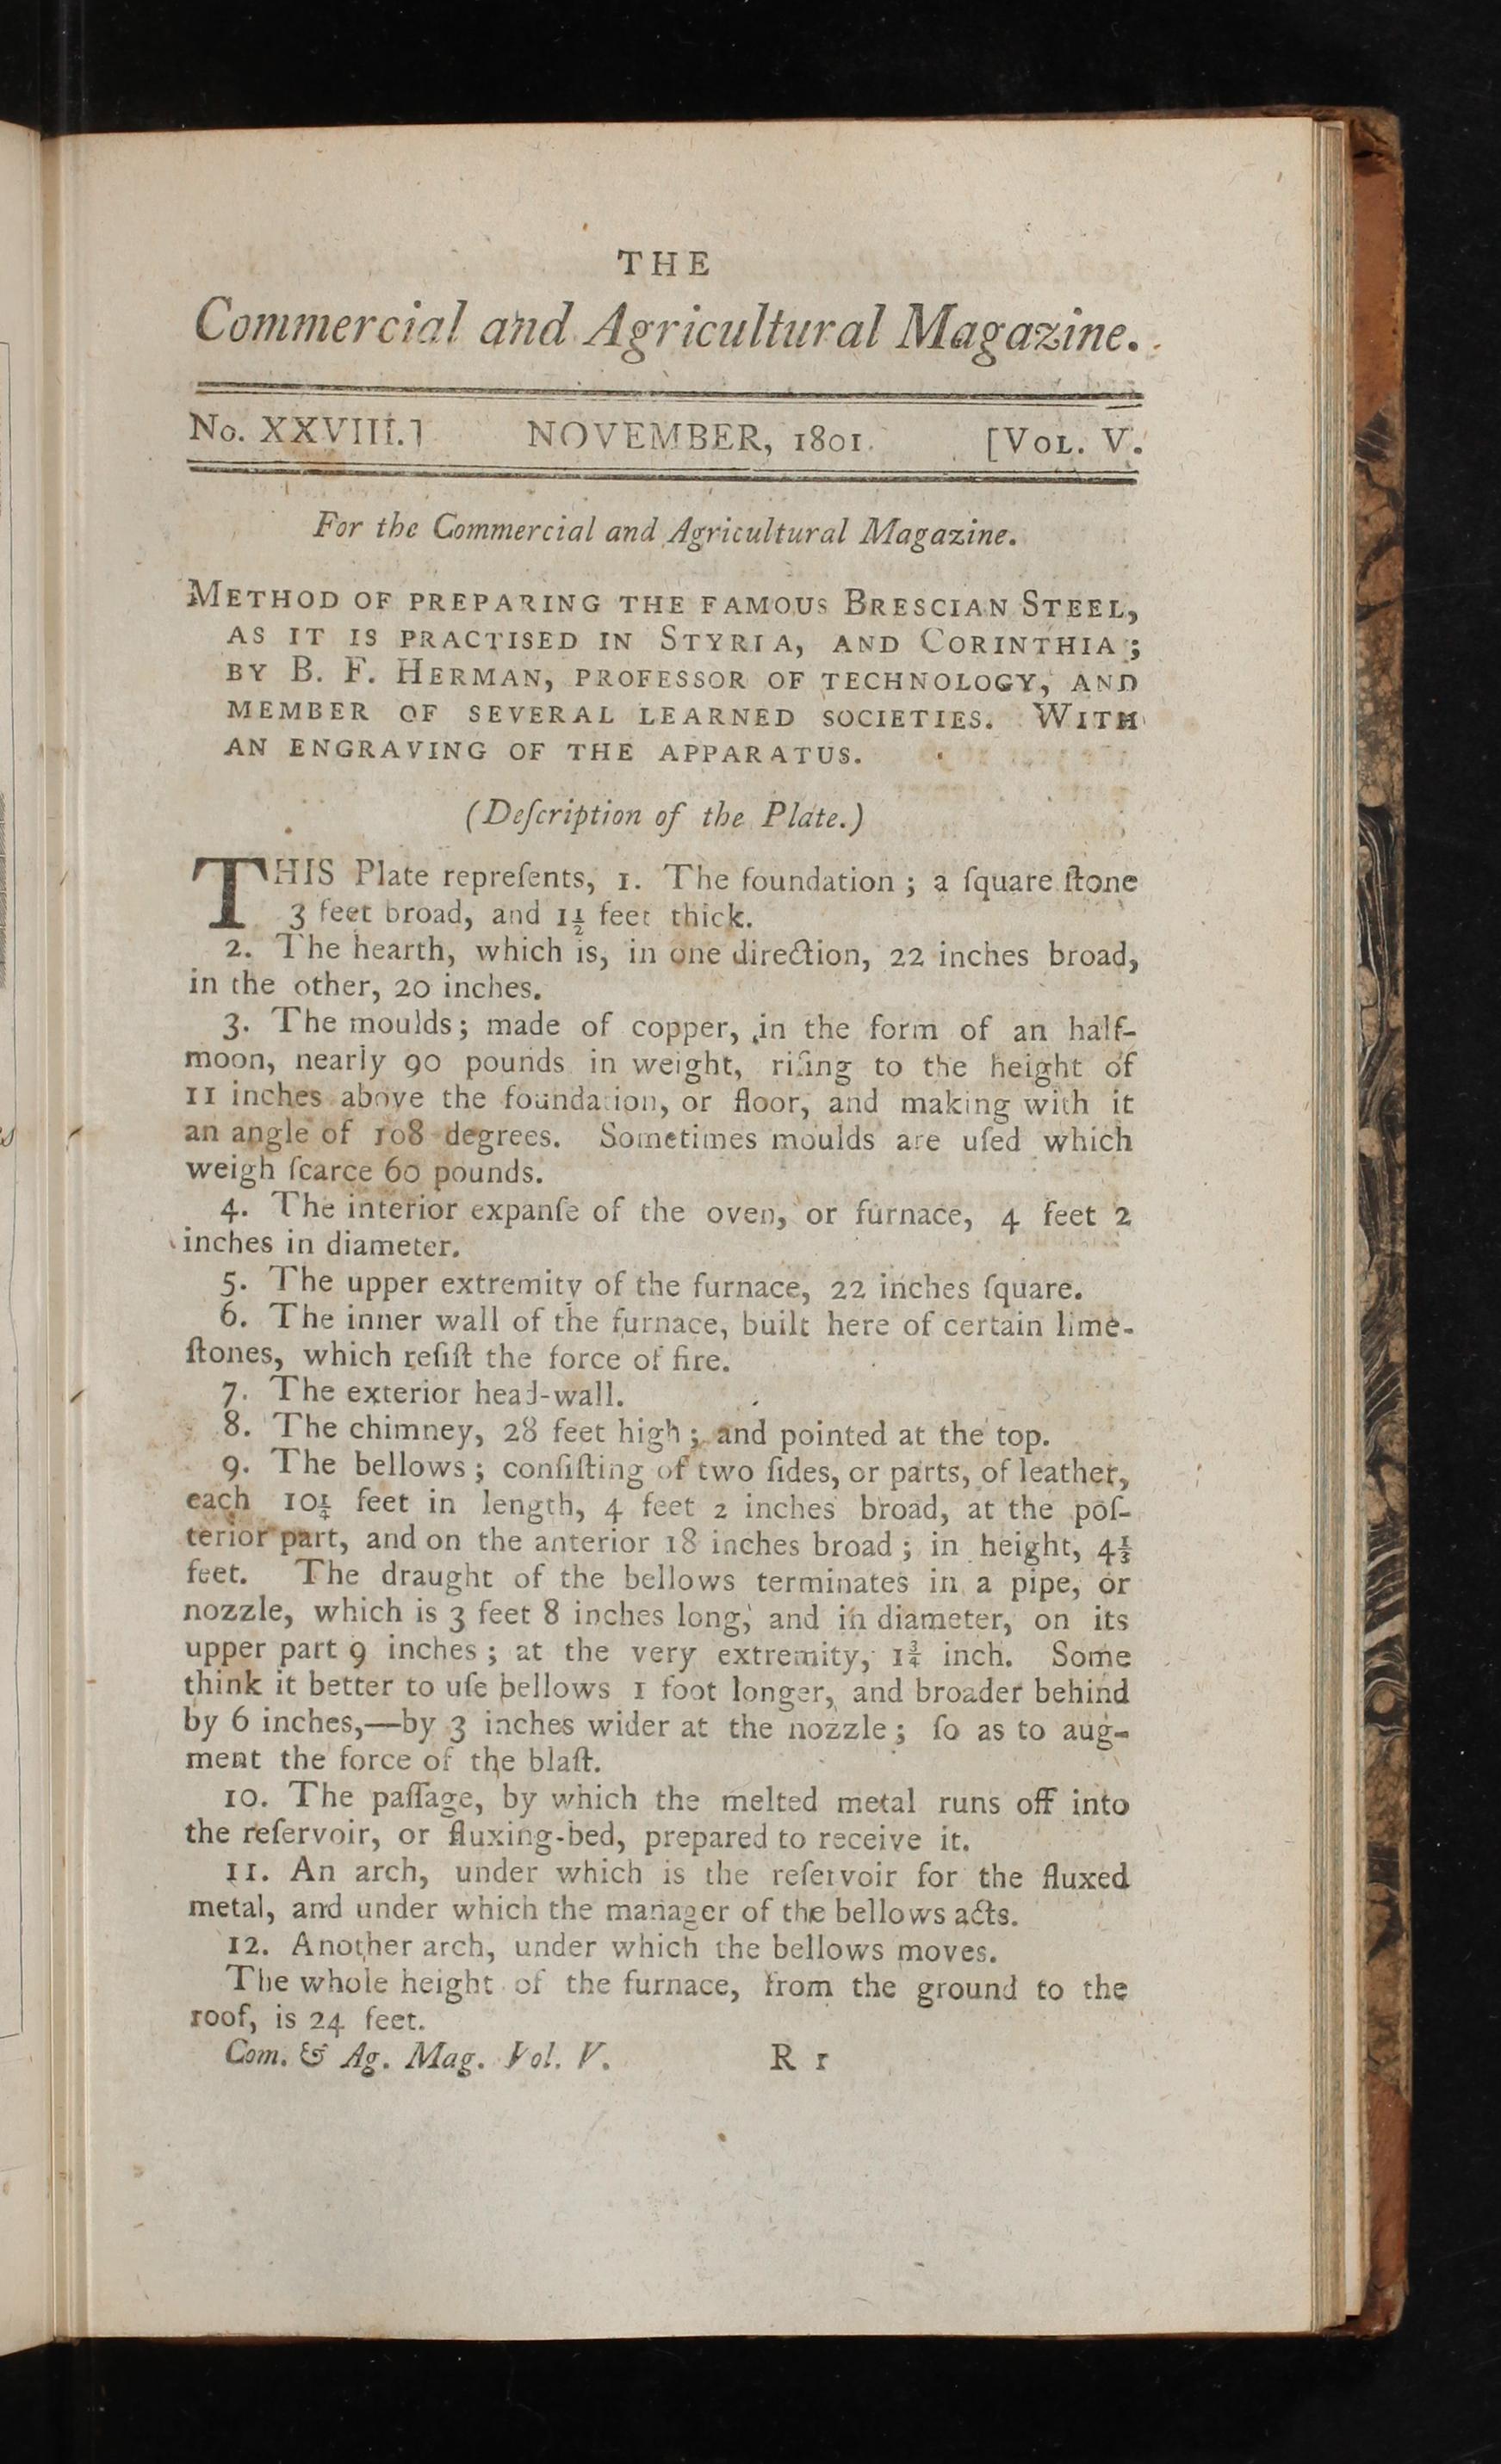 THE
Commercial and Agricultural Magazine.
No. XXVIII.] NOVEMBER, 1801. [VOL. V.
For the Commercial and Agricultural Magazine.
METHOD OF PREPARING THE FAMOUS BRESCIAN STEEL,
AS IT IS PRACTISED IN STYRIA, AND CORINTHIA;
BY B. F. HERMAN, PROFESSOR OF TECHNOLOGY, AND
MEMBER OF SEVERAL LEARNED SOCIETIES. WITH
AN ENGRAVING OF THE APPARATUS.
(Deſcription of the Plate.)
THIS Plate repreſents, 1. The foundation; a ſquare ſtone
3 feet broad, and 1½ feet thick.
2. The hearth, which is, in one direction, 22 inches broad,
in the other, 20 inches.
3. The moulds; made of copper, in the form of an half-
moon, nearly 90 pounds in weight, riſing to the height of
11 inches above the foundation, or floor, and making with it
an angle of 108 degrees. Sometimes moulds are uſed which
weigh ſcarce 60 pounds.
4. The interior expanſe of the oven, or furnace, 4 feet 2
inches in diameter.
5. The upper extremity of the furnace, 22 inches ſquare.
6. The inner wall of the furnace, built here of certain lime-
ſtones, which reſiſt the force of fire.
7. The exterior head-wall.
8. The chimney, 28 feet high; and pointed at the top.
9. The bellows; conſiſting of two ſides, or parts, of leather,
each 10¼ feet in length, 4 feet 2 inches broad, at the poſ-
terior part, and on the anterior 18 inches broad; in height, 4⅓
feet. The draught of the bellows terminates in a pipe, or
nozzle, which is 3 feet 8 inches long, and in diameter, on its
upper part 9 inches; at the very extremity, 1¾ inch. Some
think it better to uſe bellows 1 foot longer, and broader behind
by 6 inches,—by 3 inches wider at the nozzle; ſo as to aug-
ment the force of the blaſt.
10. The paſſage, by which the melted metal runs off into
the reſervoir, or fluxing-bed, prepared to receive it.
11. An arch, under which is the reſervoir for the fluxed
metal, and under which the manager of the bellows acts.
12. Another arch, under which the bellows moves.
The whole height of the furnace, from the ground to the
roof, is 24 feet.
Com. & Ag. Mag. Vol. V. R r